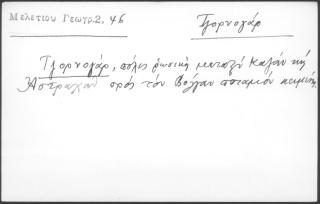 Μελετίου Γεωγρ.2, 46
Τζορνογάρ
Τζορνογάρ, πόλις ῥωσικὴ μεταξὺ Καζὰν καὶ
Ἀστραχὰν πρὸς τὸν Βόλγαν ποταμὸν κειμένη.